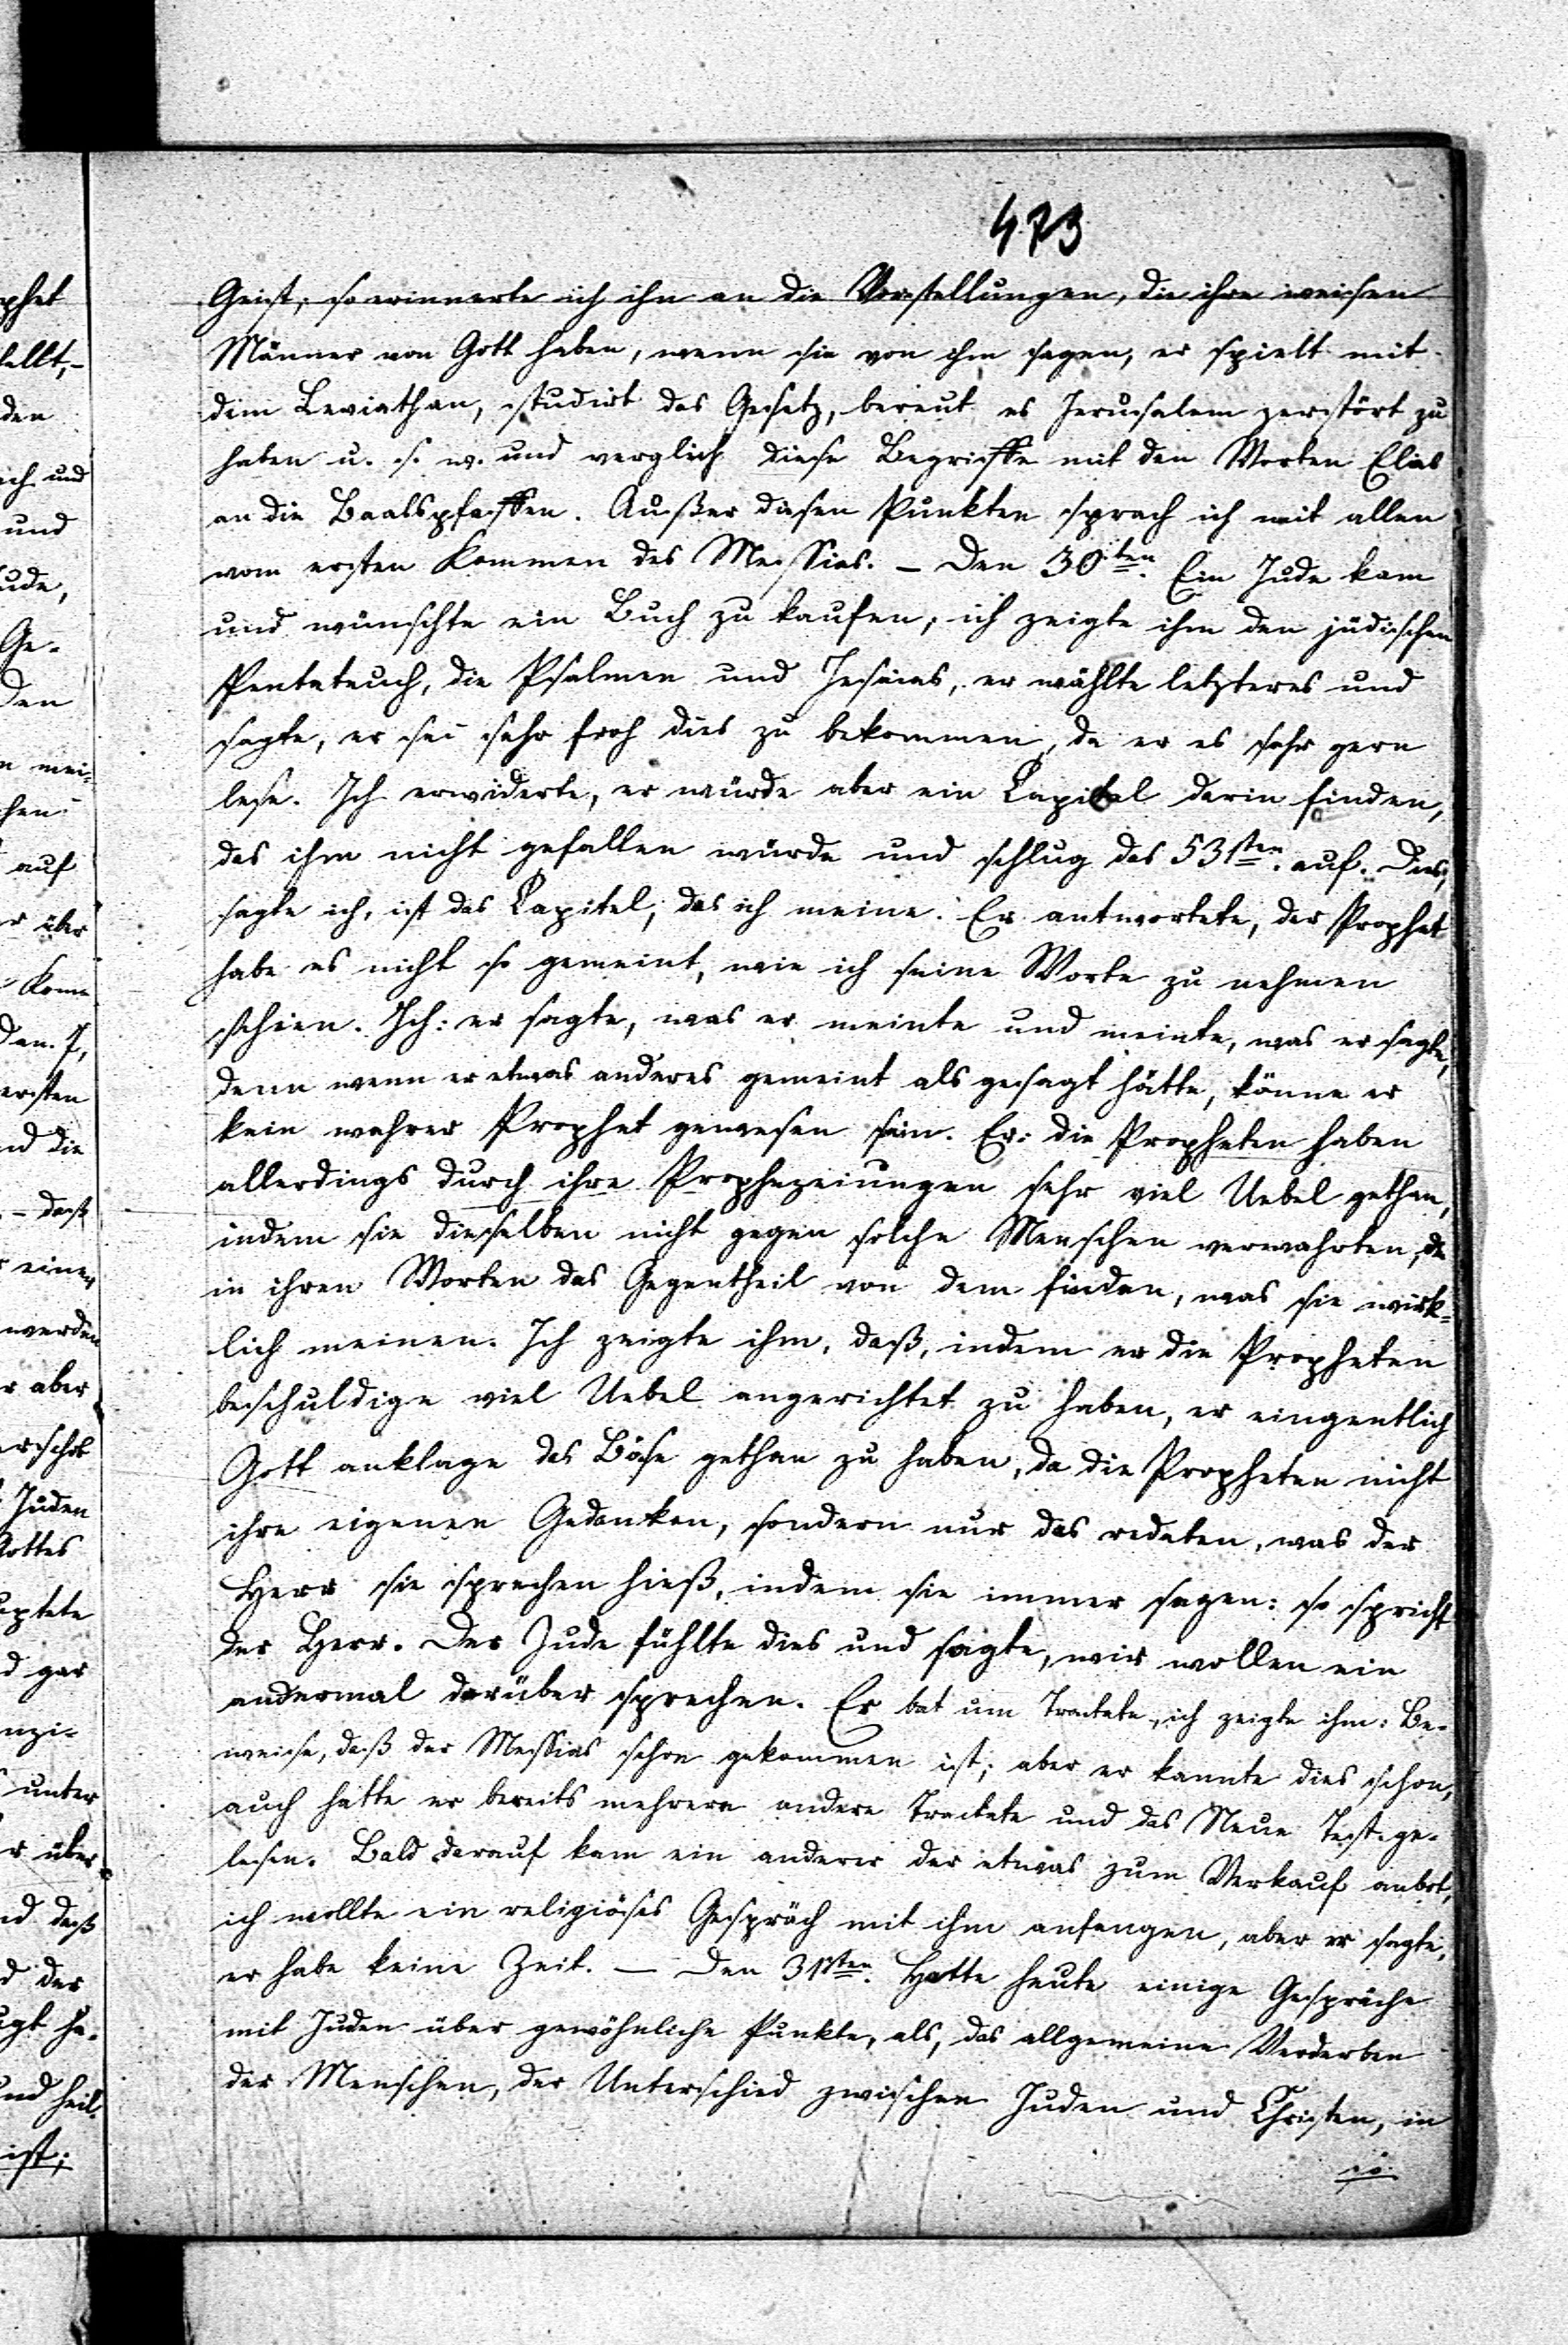 473
Geist, so erinnerte ich ihn an die Vorstellungen, die ihre weisen
Männer von Gott haben, wenn sie von ihm sagen, er spielt mit
dem Leviathan, studirt das Gesetz, bereut es Jerusalem zerstört zu
haben u. s. w. und verglich diese Begriffe mit den Worten Elias
an die Baalspfaffen. Außer diesen Punkten sprach ich mit allen
vom ersten Kommen des Messias. – Den 30ten. Ein Jude kam
und wünschte ein Buch zu kaufen, ich zeigte ihm den jüdischen
Pentateuch, die Psalmen und Jesaias, er wählte letzteres und
sagte, er sei sehr froh dies zu bekommen, da er es sehr gern
lese. Ich erwiderte, er würde aber ein Capitel darin finden,
das ihm nicht gefallen würde und schlug das 53sten. auf. Dies,
sagte ich, ist das Capitel, das ich meine. Er antwortete, der Prophet
habe es nicht so gemeint, wie ich seine Worte zu nehmen
schien. Ich: er sagte, was er meinte und meinte, was er sagte,
denn wenn er etwas anderes gemeint als gesagt hätte, könne er
kein wahrer Prophet gewesen sein. Er: die Propheten haben
allerdings durch ihre Prophezeiungen sehr viel Uebel gethan,
indem sie dieselben nicht gegen solche Menschen verwahrten, die
in ihren Worten das Gegentheil von dem finden, was sie wirk=
lich meinen. Ich zeigte ihm, daß, indem er die Propheten
beschuldige viel Uebel angerichtet zu haben, er eingentlich
Gott anklage das Böse gethan zu haben, da die Propheten nicht
ihre eigenen Gedanken, sondern nur das redeten, was der
Herr sie sprechen hieß, indem sie immer sagen: so spricht
der Herr. Der Jude fühlte dies und sagte, wir wollen ein
andermal darüber sprechen. Er bat um Tractate, ich zeigte ihm: Be-
weise, daß der Messias schon gekommen ist; aber er kannte dies schon,
auch hatte er bereits mehrere andere Tractate und das Neue Test. ge-
lesen. Bald darauf kam ein anderer der etwas zum Verkauf anbot,
ich wollte ein religiöses Gespräch mit ihm anfangen, aber er sagte,
er habe keine Zeit. – Den 31sten. Hatte heute einige Gespräche
mit Juden über gewöhnliche Punkte, als, das allgemeine Verderben
der Menschen, der Unterschied zwischen Juden und Christen, in